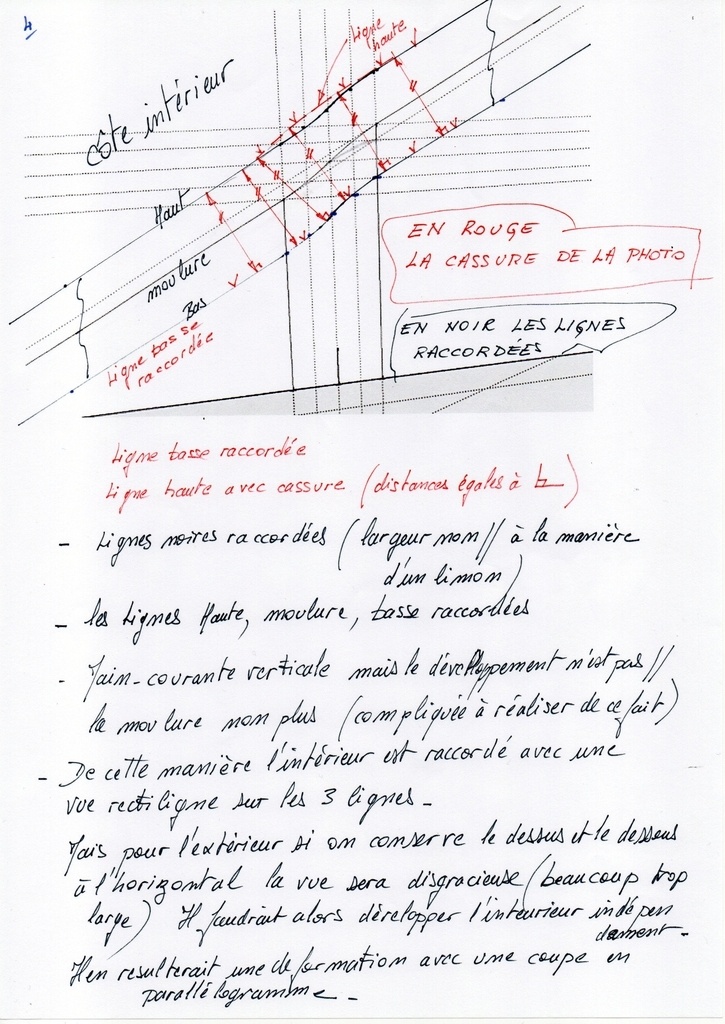 4
Ligne
haute
côte intérieur
Haut
moulure
Bas
Ligne basse
raccordée
EN ROUGE
LA CASSURE DE LA PHOTO
EN NOIR LES LIGNES
RACCORDÉES
Ligne basse raccordée
Ligne haute avec cassure (distances égales à
- Lignes noires raccordées (largeur non // à la manière
d'un limon)
- les Lignes Haute, moulure, basse raccordées
- Main-courante verticale mais le développement n'est pas //
la moulure non plus (compliquée à réaliser de ce fait)
- De cette manière l'intérieur est raccordé avec une
vue rectiligne sur les 3 lignes -
Mais pour l'extérieur si on conserve le dessus et le dessous
à l'horizontal la vue sera disgracieuse (beaucoup trop
large) Il faudrait alors développer l'interieur indépen
dament -
Il en resulterait une deformation avec une coupe en
parallélogramme -